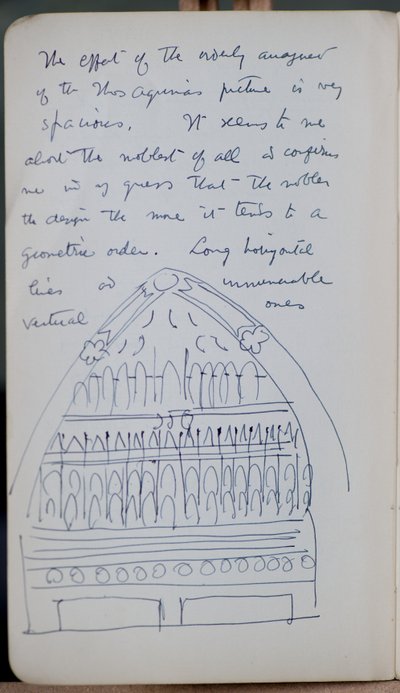 The effect of the orderly arrangmt
of the Thos Aquinas picture is very
spacious. It seems to me
about the noblest of all & confirms
me in my guess that the nobler
the design the more it tends to a
geometric order. Long horizontal
lines & innumerable
vertical ones